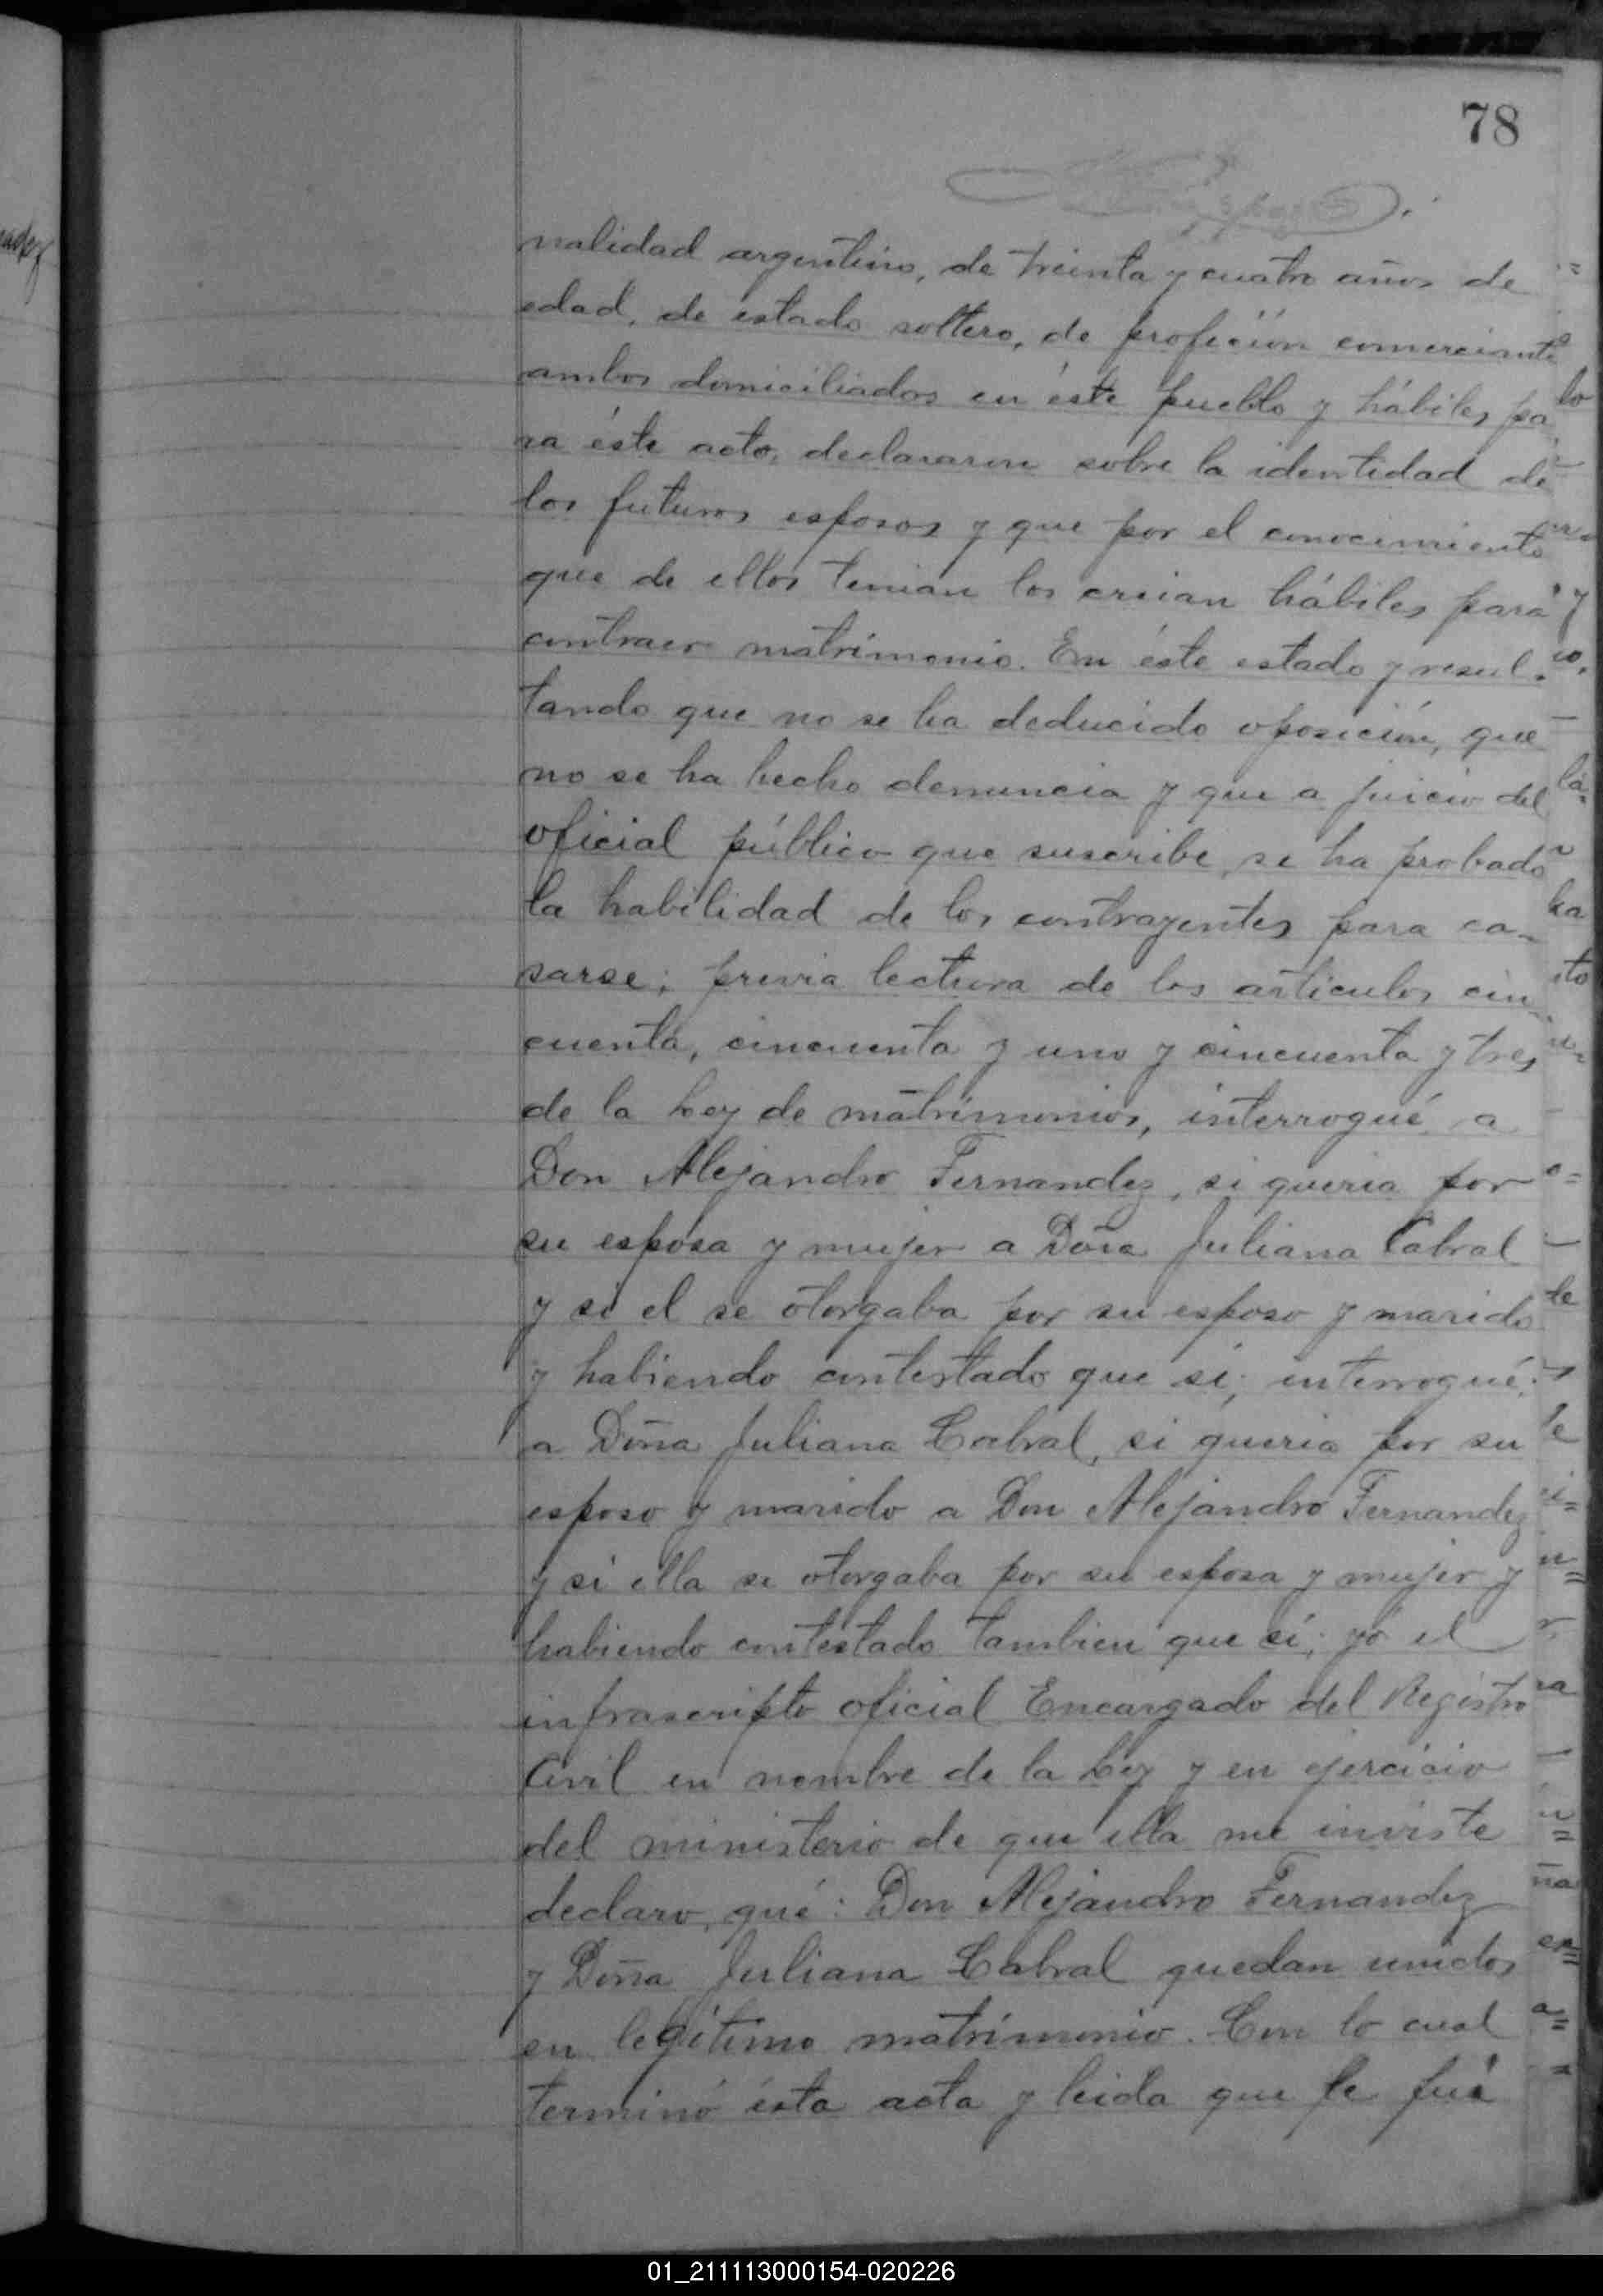 78
nalidad argentino, de treinta y cuatro años de
edad, de estado soltero, de profeción comerciante
ambos domiciliados en éste pueblo y hábiles pa
ra éste acto, declararon sobre la identidad de
los futuros esposos y que por el conocimiento
que de ellos tenian los creian hábiles para
contraer matrimonio. En éste estado y resul-
tando que no se ha deducido oposición, que
no se ha hecho denuncia y que a juicio del
oficial público que suscribe se ha probado
la habilidad de los contrayentes para ca-
sarse; previa lectura de los articulos cin
cuenta, cincuenta y uno y cincuenta y tres
de la Ley de matrimonios, interrogué a
Don Alejandro Fernandez, si queria por
su esposa y mujer a Doña Juliana Cabral
y si el se otorgaba por su esposo y marido
y habiendo contestado que si; interrogué
a Doña Juliana Cabral, si queria por su
esposo y marido a Don Alejandro Fernandez
y si ella se otorgaba por su esposa y mujer y
habiendo contestado tambien que si; yó el
infrascripto oficial Encargado del Registro
Civil en nombre de la Ley y en ejercicio
del ministerio de que ella me inviste
declaro, qué: Don Alejandro Fernandez
y Doña Juliana Cabral quedan unidos
en legítimo matrimonio. Con lo cual
terminó ésta acta y leida que le fué
01_211113000154-020226